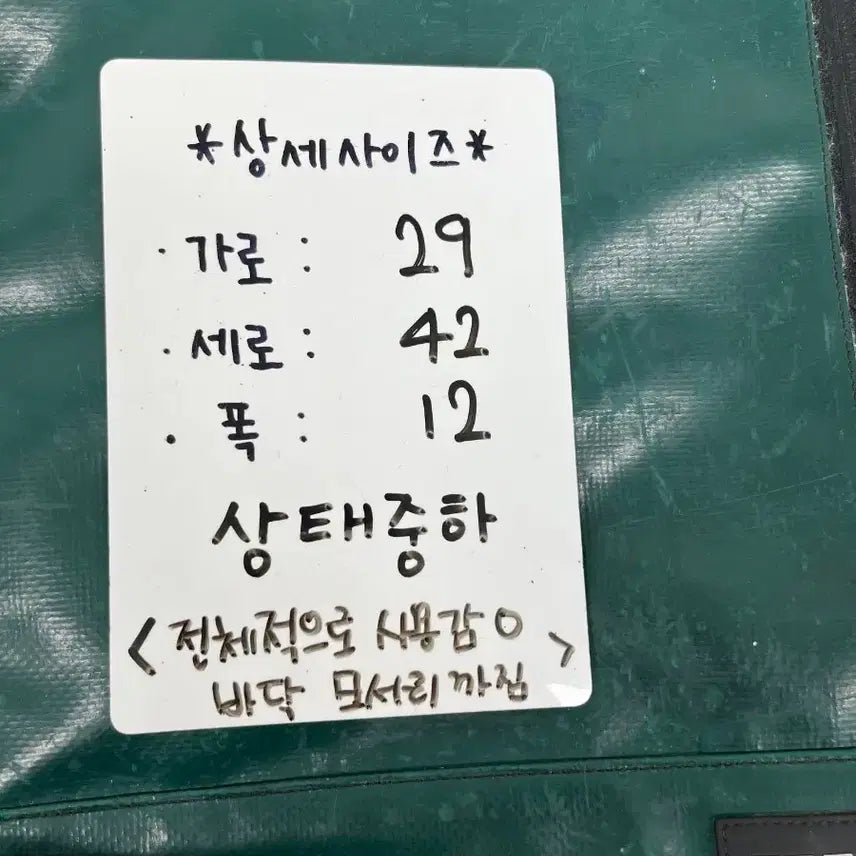 *상세사이즈*
· 가로 : 29
· 세로 : 42
· 폭 : 12
상태중하
< 전체적으로 사용감 O
바닥 모서리 까짐 >